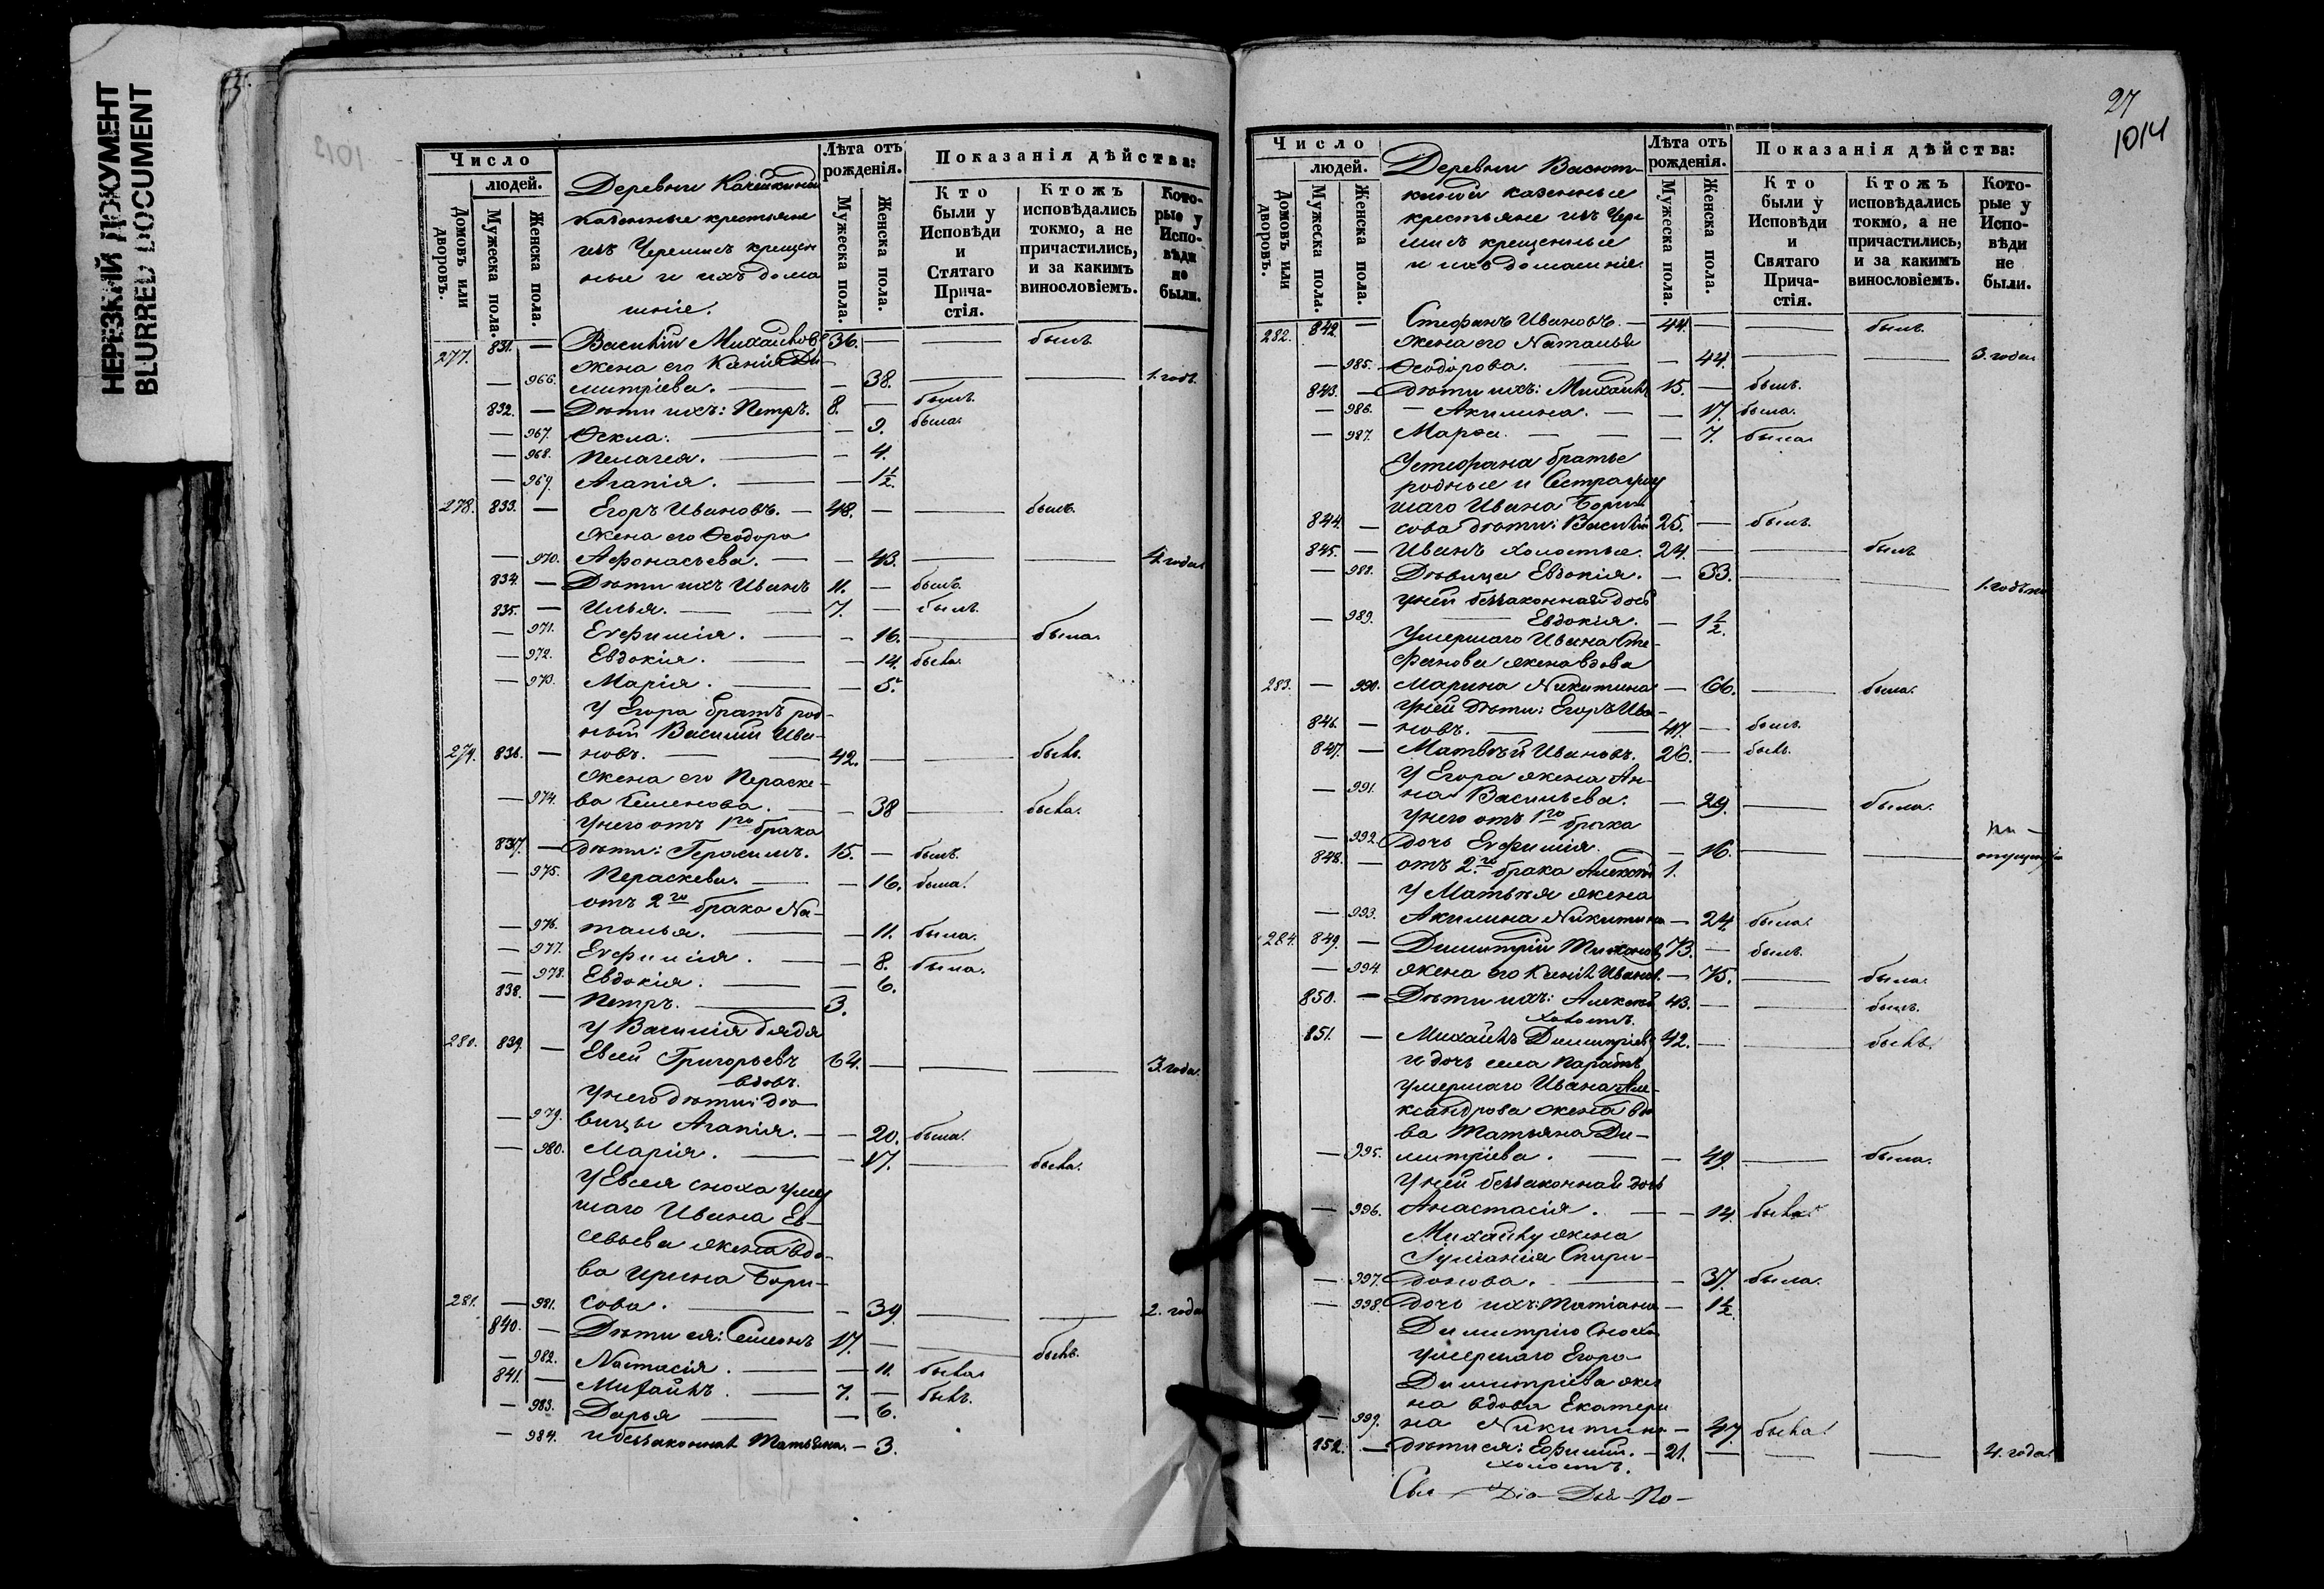 НЕРЕЗКИЙ ДОКУМЕНТ
BLURRED DOCUMENT
Число
людей.
Домовъ или дворовъ.
Мужеска пола.
Женска пола.
Деревни
казенные крестьяне
изъ Черемисъ крещен
ные и ихъ дома
шніе.
Лѣта отъ рожденія.
Мужеска пола.
Женска пола.
Показанія дѣйства:
Кто были у Исповѣди и Стятаго Прича-стія.
Ктожъ исповѣдались токмо, а не причастились, и за какимъ винословіемъ.
Кото-рые у Испо-вѣди не были.
277. 831. — Василій Михайловъ 36. — — былъ
жена его Ди
— 966. митріева. — — 38. — — 1. годъ.
832. — Дѣти ихъ: Петръ. 8. — былъ.
— 967. Ѳекла. — — 9. была.
— 968. Пелагея. — — 4.
— 969. Агапія. — — 1½.
278. 833. — Егоръ Ивановъ. — 48. — — былъ.
жена его Ѳеодора
— 970. Афонасьева. — — 43. — — 4. года.
834. — Дѣти ихъ Иванъ 11. — былъ.
835. — Илья. — — 7. — былъ.
— 971. Евфимія. — — 16. — была.
— 972. Евдокія. — — 14. была.
— 973. Марія. — — 5.
У Егора братъ род-
ный Василій Ива-
279. 836. — новъ. — — 42. — — былъ.
жена его Параске-
— 974. ва Семенова. — — 38 — была.
У него отъ 1го брака
837. — дѣти: Герасимъ. 15. — былъ.
— 975. Параскева. — — 16. была.
отъ 2го брака На-
— 976. талья. — — 11. была.
— 977. Евфимія. — — 8. была.
— 978. Евдокія. — — 6.
838. — Петръ. — 3.
У Василія дядя
280. 839. — Евсей Григорьевъ 64. — — — 3. года.
вдовъ.
У него дѣти: дѣ-
— 979. вицы Агапія. — — 20. была.
— 980. Марія. — — 17. — была.
У Евсея сноха умер
шаго Ивана Ев-
сеьева жена вдо-
ва Ирина Бори-
281. — 981. сова. — — 39 — — 2. года
840. — Дѣти ея: Семенъ 17. — — былъ.
— 982. Настасія. — — 11. была
841. — Михайлъ. — 7. — былъ.
— 983. Дарья — — 6.
— 984. и беззаконная Татьяна. — 3.
27
1014
Число
людей.
Домовъ или дворовъ.
Мужеска пола.
Женска пола.
Деревни Васют-
киной казенные
крестьяне изъ Чере
мисъ крещенные
и ихъ домашніе
Лѣта отъ рожденія.
Мужеска пола.
Женска пола.
Показанія дѣйства:
Кто были у Исповѣди и Святаго Прича-стія.
Ктожъ исповѣдались токмо, а не причастились, и за какимъ винословіемъ.
Кото-рые у Испо-вѣди не были.
282. 842. — Стефанъ Ивановъ. — 44. — — былъ
жена его Наталья
— 985. Ѳеодорова. — — 44. — — 3. года
843. — Дѣти ихъ: Михайлъ 15. — былъ.
— 986. — Акилина. — — 17. была.
— 987. Марѳа. — — — 7. была.
У Стефана братье
родные и Сестра умер
шаго Ивана Бори
844. — сова дѣти: Василій 25. — былъ.
845. — Иванъ холостые. 24. — — былъ
— 988. Дѣвица Евдокія. — 33. — — 1. годъ
У ней беззаконная дочь
— 989. — Евдокія. — 1½.
Умершаго Ивана Сте-
фанова жена вдова
283. — 990. Марина Никитина — 66. — была.
У ней дѣти: Егоръ Ива-
846. — новъ. — — 47. — былъ.
847. — Матвѣй Ивановъ. 26. — былъ.
У Егора жена Ан-
— 991. на Васильева. — 29. — была.
У него отъ 1го брака
— 992. Дочь Евфимія. — 16. — —
848. — отъ 2го брака Алексѣй 1.
У Матвѣя жена
— 993. Акилина Никитина — 24. была.
284. 849. — Димитрій Тихоновъ 73. — былъ.
— 994. жена его Иванов. — 75. — была.
850. — Дѣти ихъ: Алексѣй 43. — — былъ.
холостъ.
851. — Михайлъ Димитріевъ 42. — — былъ.
и дочь села Паратъ
умершаго Ивана Але-
ксандрова жена вдо
ва Татьяна Ди-
— 995. митріева. — — 49. — была.
У ней беззаконная дочь
— 996. Анастасія. — — 14. была.
Михайлу жена
Іуліанія Спири-
— 997. донова. — — 37. была.
— 998. дочь ихъ: Татіана — 1½
Димитрію Сноха
умершаго Егора
Димитріева жен
на вдова Екатери
— 999. на Никитина — 47 была.
852. — дѣти ея: Ефимій. — 21. — — — 4. года.
холостъ.